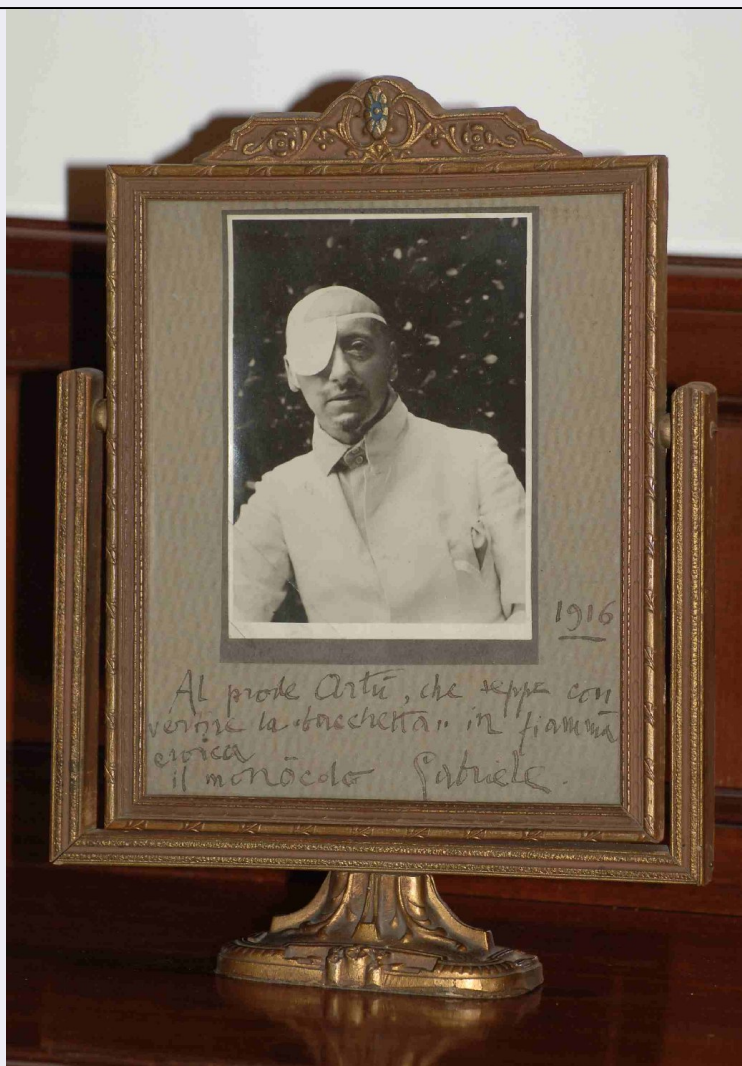 1916
Al prode Artù, che seppe con
vertire la "bacchetta" in fiamma
eroica
il monòcolo Gabriele.